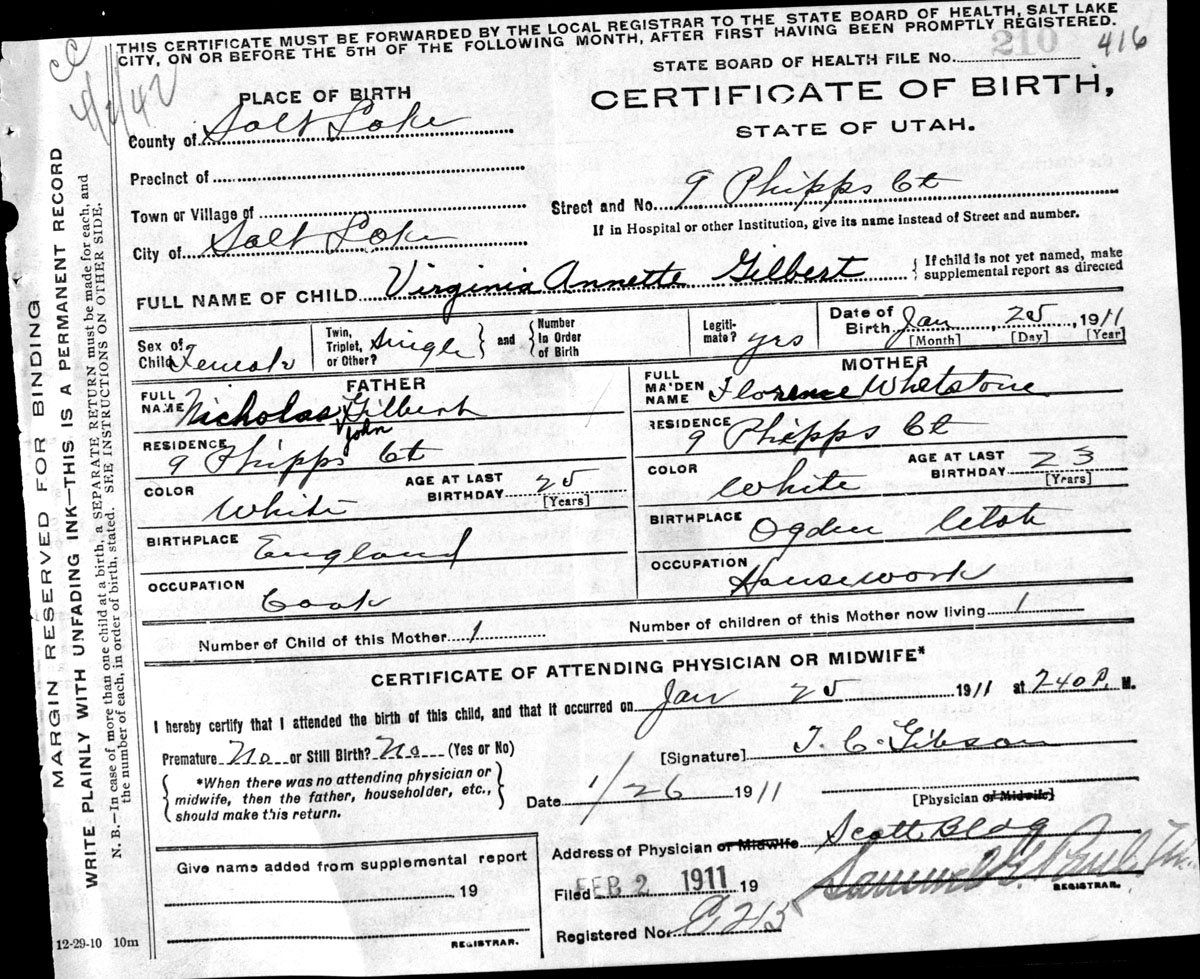 THIS CERTIFICATE MUST BE FORWARDED BY THE LOCAL REGISTRAR TO THE STATE BOARD OF HEALTH, SALT LAKE
CITY, ON OR BEFORE THE 5TH OF THE FOLLOWING MONTH, AFTER FIRST HAVING BEEN PROMPTLY REGISTERED.
210
416
STATE BOARD OF HEALTH FILE No.
CERTIFICATE OF BIRTH,
STATE OF UTAH.
PLACE OF BIRTH
County of Salt Lake
Precinct of
Town or Village of
City of Salt Lake
Street and No. 9 Phipps Ct
If in Hospital or other Institution, give its name instead of Street and number.
FULL NAME OF CHILD Virginia Annette Gilbert
If child is not yet named, make
supplemental report as directed
Sex of
Child Female
Twin,
Triplet,
or Other? Single
and
Number
in Order
of Birth
Legiti-
mate? yes
Date of
Birth Jan, 25, 1911
[Month] [Day] [Year]
FATHER
FULL
NAME Nicholas Gilbert
John
RESIDENCE
9 Phipps Ct
COLOR
White
AGE AT LAST
BIRTHDAY 25
[Years]
BIRTHPLACE
England
OCCUPATION
Cook
MOTHER
FULL
MAIDEN
NAME Florence Whetstone
RESIDENCE
9 Phipps Ct
COLOR
White
AGE AT LAST
BIRTHDAY 23
[Years]
BIRTHPLACE
Ogden Utah
OCCUPATION
Housework
Number of Child of this Mother 1
Number of children of this Mother now living 1
CERTIFICATE OF ATTENDING PHYSICIAN OR MIDWIFE*
I hereby certify that I attended the birth of this child, and that it occurred on Jan 25 1911 at 240 P. M.
Premature No or Still Birth? No (Yes or No)
*When there was no attending physician or
midwife, then the father, householder, etc.,
should make this return.
[Signature] T. C. Gibson
Date 1/26 1911
[Physician or Midwife]
Address of Physician or Midwife Scott Bldg
Give name added from supplemental report
19
REGISTRAR.
Filed FEB 2 1911 19
Samuel G. Paul
REGISTRAR.
Registered No. C 213
12-29-10 10m
MARGIN RESERVED FOR BINDING
WRITE PLAINLY WITH UNFADING INK—THIS IS A PERMANENT RECORD
N. B.—In case of more than one child at a birth, a SEPARATE RETURN must be made for each, and
the number of each, in order of birth, stated. SEE INSTRUCTIONS ON OTHER SIDE.